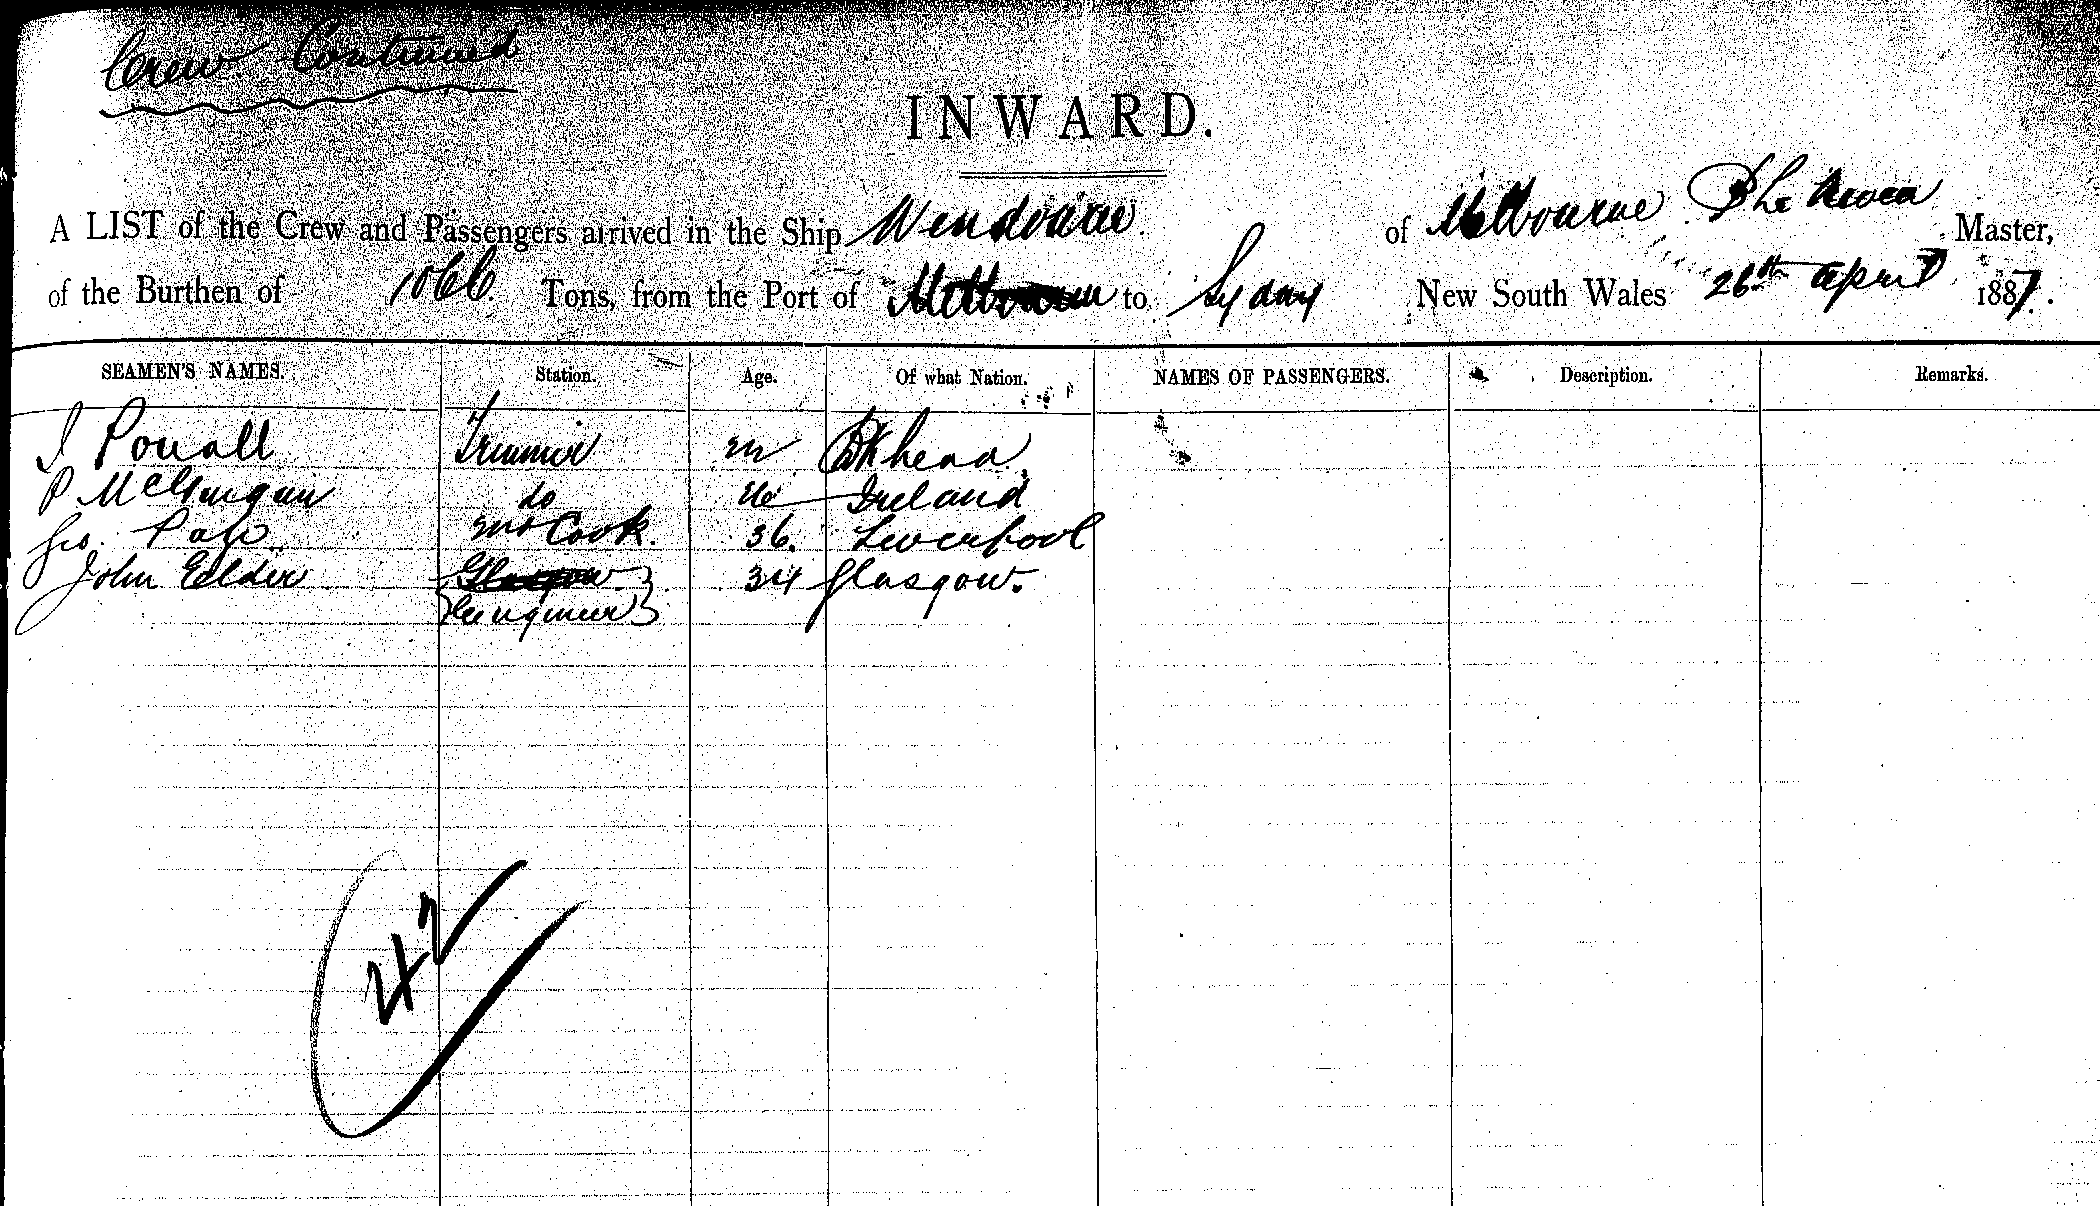 Crew Continued
INWARD.
A LIST of the Crew and Passengers arrived in the Ship Wendouree of Melbourne Master,
of the Burthen of 1066 Tons, from the Port of Melbourne to Sydney New South Wales 26th April 1887.
SEAMEN'S NAMES. Station. Age. Of what Nation. NAMES OF PASSENGERS. Description. Remarks.
J Pouall Trimmer Bkhead
P do Ireland
Geo. Page 2nd Cook. 36. Liverpool
John Elder Glasgow 34 Glasgow.
Engineer
42